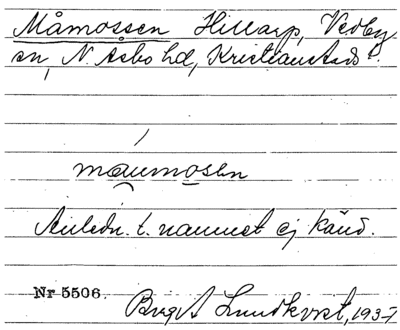 Måmossen Hillarp, Vedby
sn, N. Åsbo hd, Kristianstads l.
maumosen
Anledn. t. namnet ej känd.
Nr 5506. Birgit Lundkvist, 1937